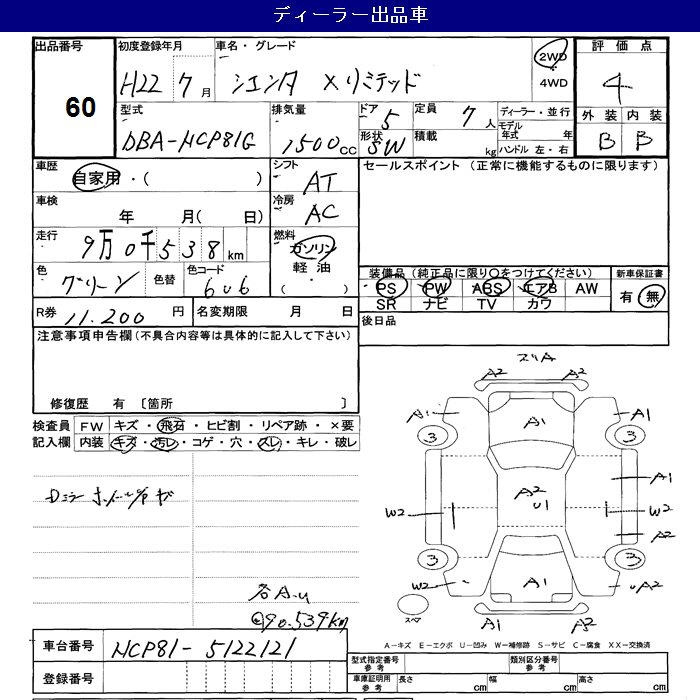 ディーラー出品車
出品番号
60
初度登録年月
H22 7月
車名・グレード
シエンタ Xリミテッド
2WD
4WD
評価点
4
外装 内装
B B
型式
DBA-NCP81G
排気量
1500cc
ドア 5
形状 SW
定員 7人
積載 kg
ディーラー・並行
モデル年式 年
ハンドル 左・右
車歴
自家用・( )
シフト
AT
セールスポイント (正常に機能するものに限ります)
車検
年 月( 日)
冷房
AC
走行
9万0千538km
燃料
ガソリン
軽油
( )
色
グリーン
色替
色コード
606
装備品(純正品に限り〇をつけてください)
PS PW ABS エアB AW
SR ナビ TV カワ
新車保証書
有・無
R券 11.200円
名変期限 月 日
後日品
注意事項申告欄(不具合内容等は具体的に記入して下さい)
修復歴 有 〔箇所 〕
検査員記入欄
FW キズ・飛石・ヒビ割・リペア跡・×要
内装 キズ・汚レ・コゲ・穴・スレ・キレ・破レ
各A.U
@90.539km
スリA
A2 A2
A1 A1 A1
3 3
A1
A2 U1
W2 W2
A2
3 3
W2 A1 UA2
スペア
A1 A2
A-キズ E-エクボ U-凹み W-補修跡 S-サビ C-腐食 XX-交換済
車台番号
NCP81-5122121
登録番号
型式指定番号 参考
類別区分番号 参考
車庫証明用 参考
長さ cm 幅 cm 高さ cm